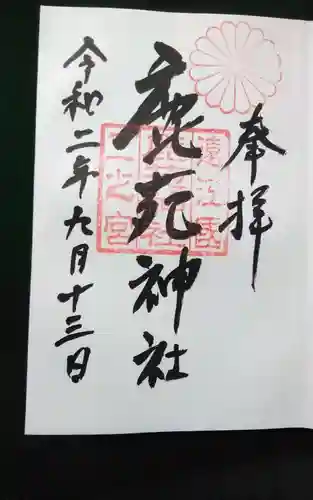 奉拝
鹿苑神社
令和二年九月十三日
遠江國
一之宮